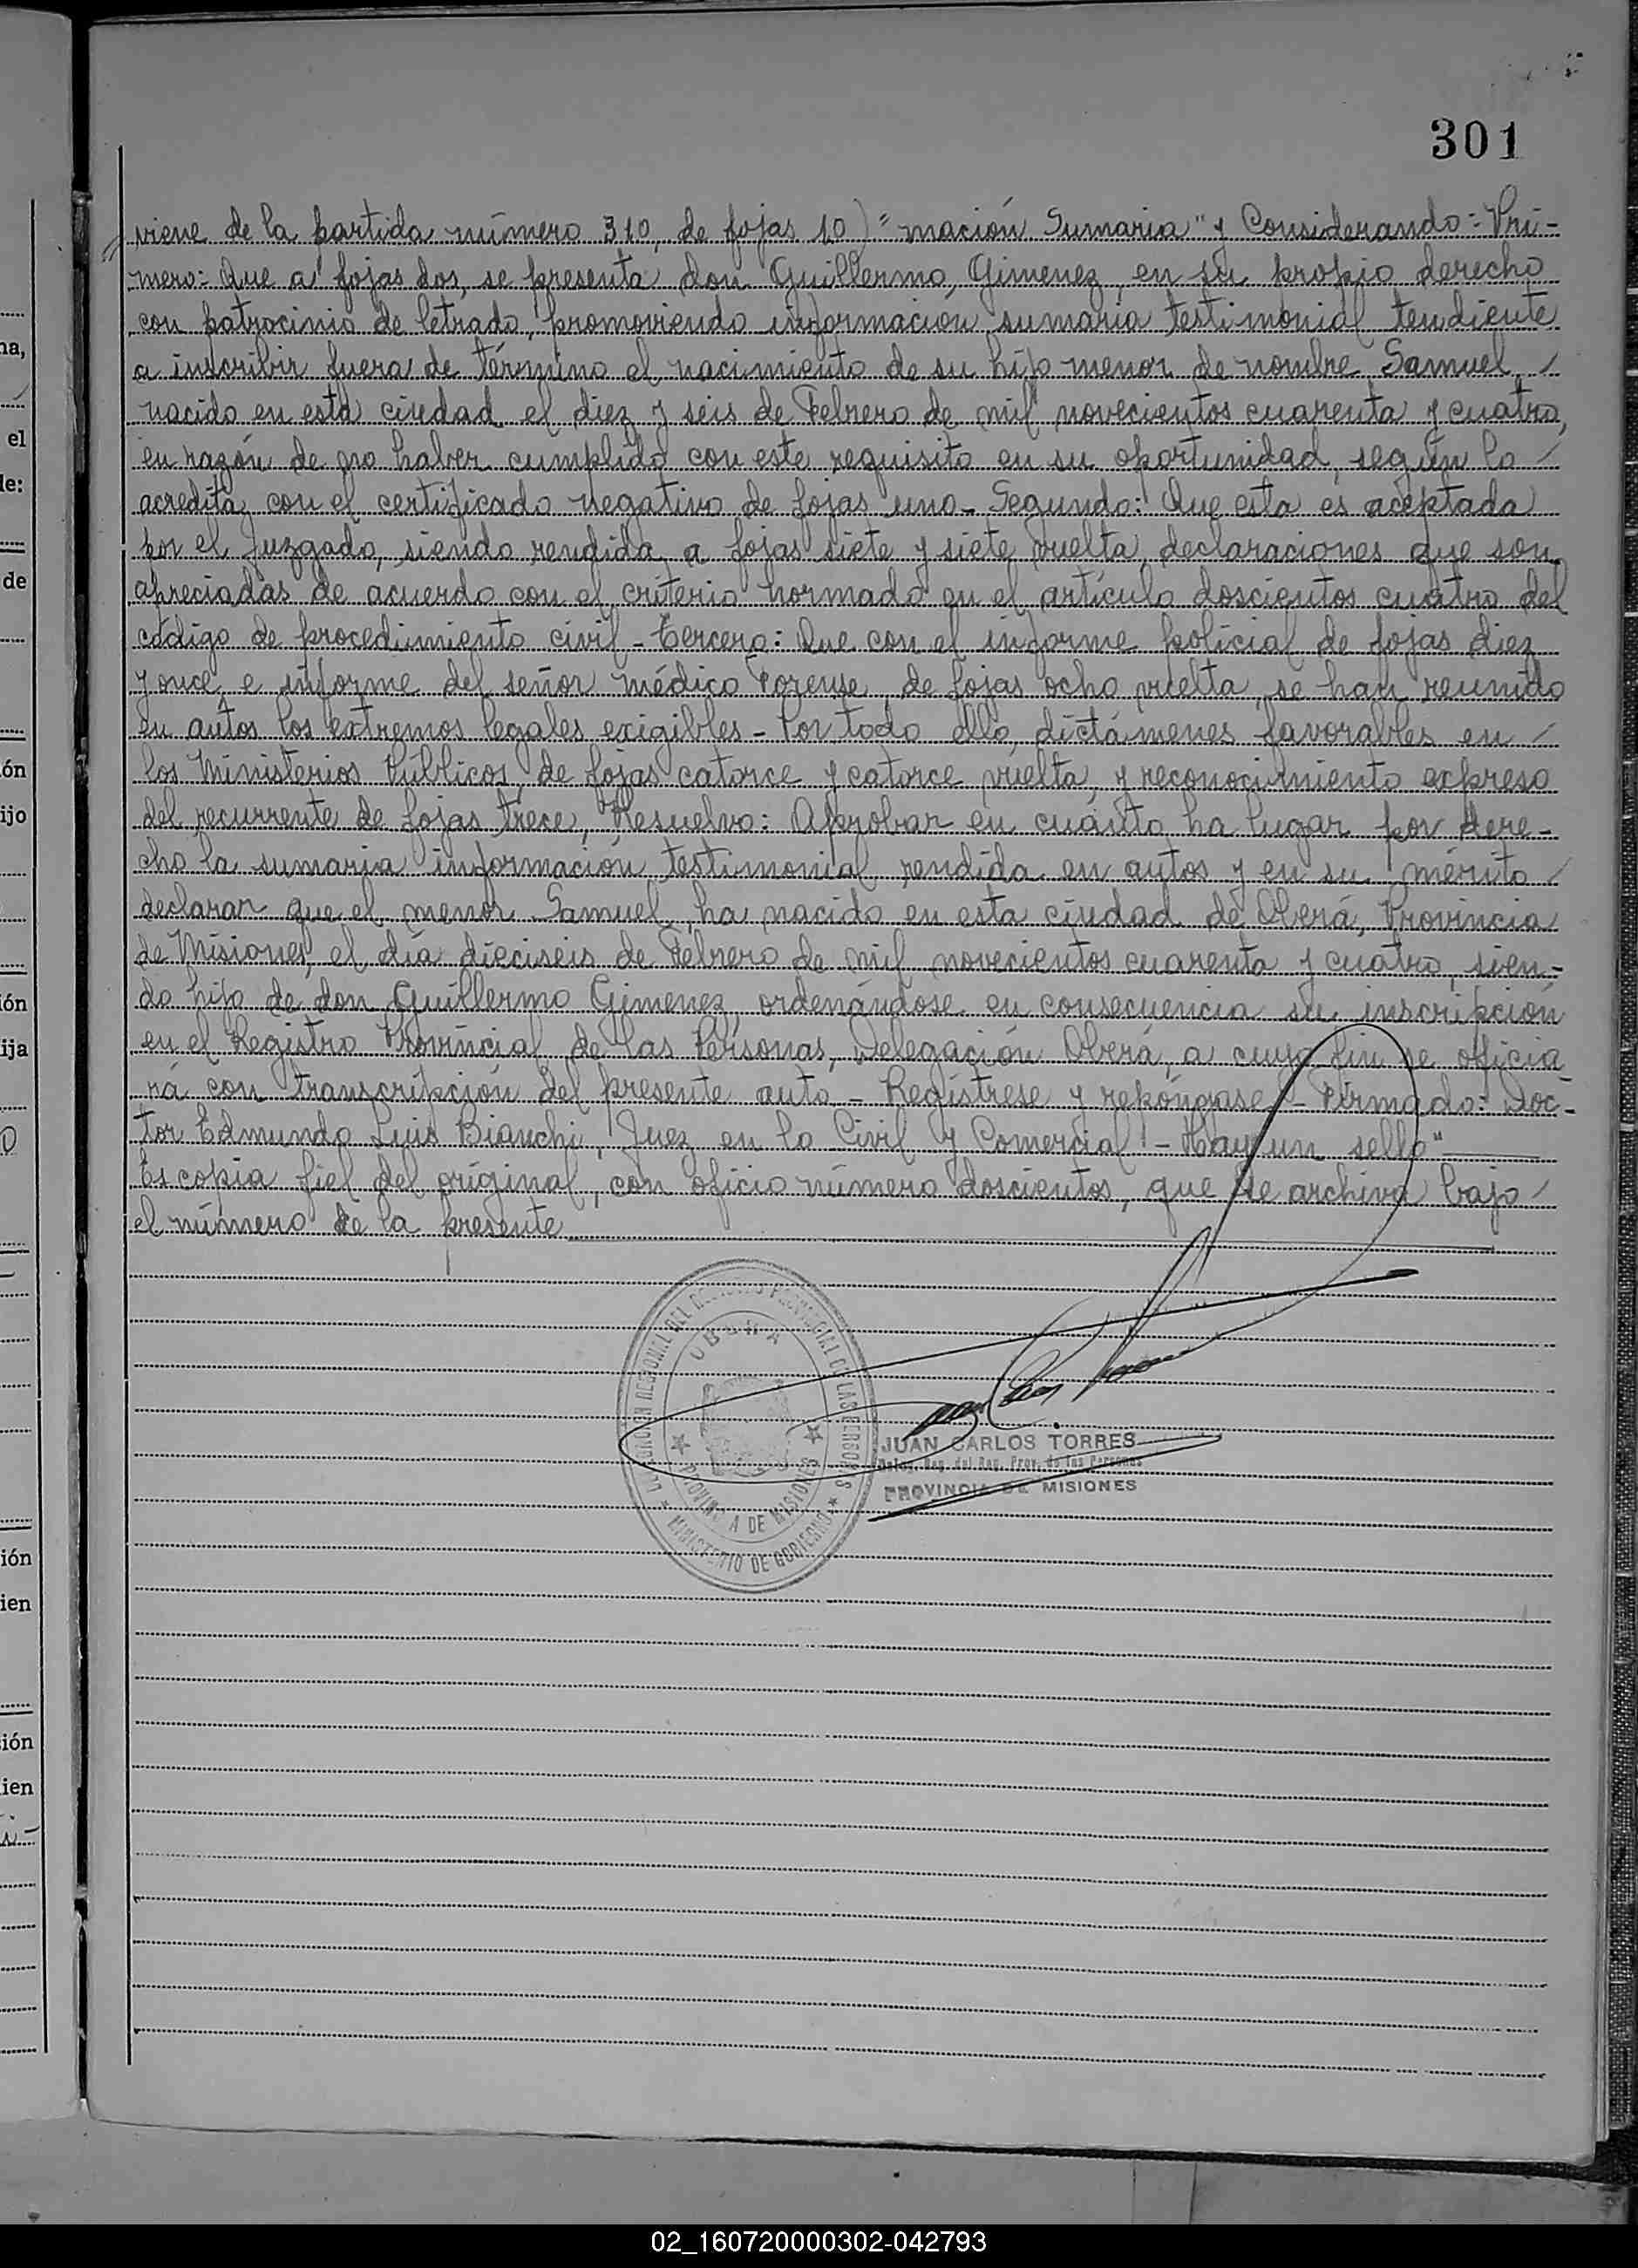 301
viene de la partida número 310, de fojas 10) "mación Sumaria" y Considerando: Pri-
mero: Que a fojas dos, se presenta don Guillermo Gimenez, en su propio derecho
con patrocinio de letrado, promoviendo información sumaria testimonial tendiente
a inscribir fuera de término el nacimiento de su hijo menor de nombre Samuel,
nacido en esta ciudad el diez y seis de Febrero de mil novecientos cuarenta y cuatro,
en razón de no haber cumplido con este requisito en su oportunidad, según lo
acredita con el certificado negativo de fojas uno - Segundo: Que esta es aceptada
por el Juzgado, siendo rendida a fojas siete y siete vuelta, declaraciones que son
apreciadas de acuerdo con el criterio normado en el artículo doscientos cuatro del
código de procedimiento civil - Tercero: Que con el informe policial de fojas diez
y once e informe del señor médico Forense, de fojas ocho vuelta, se han reunido
en autos los extremos legales exigibles - Por todo ello, dictámenes favorables en
los Ministerios Públicos, de fojas catorce y catorce vuelta, y reconocimiento expreso
del recurrente de fojas trece, Resuelvo: Aprobar en cuánto ha lugar por dere-
cho la sumaria información testimonial rendida en autos y en su mérito
declarar que el menor Samuel, ha nacido en esta ciudad de Oberá, Provincia
de Misiones, el día dieciseis de Febrero de mil novecientos cuarenta y cuatro, sien-
do hijo de don Guillermo Gimenez, ordenándose en consecuencia su inscripción
en el Registro Provincial de las Personas, Delegación Oberá, a cuyo fin se oficia-
rá con transcripción del presente auto - Regístrese y repóngase - Firmado: Doc-
tor Edmundo Luis Bianchi, Juez en lo Civil y Comercial - Hay un sello"
Es copia fiel del original, con oficio número doscientos, que se archiva bajo
el número de la presente
DELEGACION REGIONAL DEL REGISTRO PROVINCIAL DE LAS PERSONAS
OBERA
PROVINCIA DE MISIONES
MINISTERIO DE GOBIERNO
JUAN CARLOS TORRES
Deleg. Reg. del Reg. Prov. de las Personas
PROVINCIA DE MISIONES
na,
el
de:
de
ón
ijo
ión
ija
ión
ien
sión
ien
02_160720000302-042793